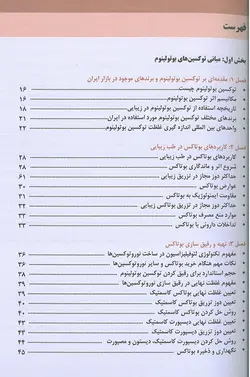 فهرست
بخش اول: مبانی توکسین‌های بوتولینوم
فصل ۱: مقدمه‌ای بر توکسین بوتولینوم و برندهای موجود در بازار ایران
توکسین بوتولینوم چیست ۱۶
مکانیسم اثر توکسین بوتولینوم ۱۶
تاریخچه استفاده از توکسین بوتولینوم در زیبایی ۱۸
برندهای مختلف توکسین بوتولینوم مورد استفاده در ایران ۲۱
واحدهای بین المللی اندازه گیری غلظت توکسین بوتولینوم ۲۲
فصل ۲: کاربردهای بوتاکس در طب زیبایی
کاربردهای بوتاکس در طب زیبایی ۲۸
شروع اثر و ماندگاری بوتاکس ۲۸
حداکثر دوز مجاز در تزریق زیبایی
عوارض بوتاکس ۳۰
مقاومت ایمنولوژیک به بوتاکس
حداکثر دوز مجاز در تزریق زیبایی بوتاکس
موارد منع مصرف بوتاکس ۳۳
تداخلات دارویی با بوتاکس ۳۳
فصل ۳: تهیه و رقیق سازی بوتاکس
مفهوم تکنولوژی لئوفیلیزاسیون در ساخت نوروتوکسین‌ها ۳۶
نکات مهم هنگام خرید بوتاکس و سایر نوروتوکسین‌ها ۳۶
حجم استاندارد برای رقیق کردن توکسین بوتولینوم ۳۸
مفهوم غلظت نهایی در رقیق سازی نوروتوکسین‌ها ۳۹
تعیین غلظت نهایی بوتاکس کاسمتیک ۳۹
تعیین دوز تزریق بوتاکس کاسمتیک
روش حل کردن بوتاکس کاسمتیک
تعیین غلظت نهایی دیسپورت کاسمتیک
تعیین دوز تزریق دیسپورت کاسمتیک
روش حل کردن دیسپورت کاسمتیک دیستون و مصپورت ۴۴
نگهداری و ذخیره بوتاکس ۴۵